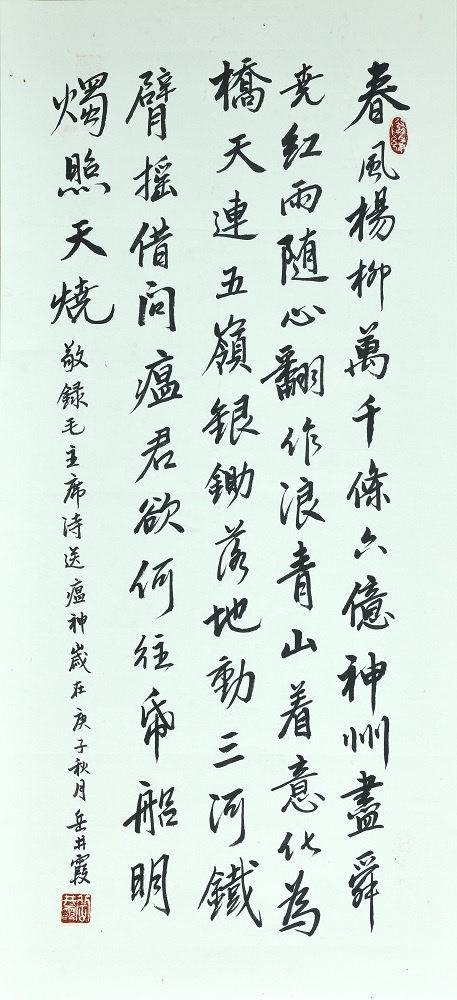 春風楊柳萬千條六億神州盡舜
堯紅雨隨心翻作浪青山着意化為
橋天連五嶺銀鋤落地動三河鐵
臂摇借问瘟君欲何往帋船明
燭照天燒
敬録毛主席诗送瘟神歲在庚子秋月岳井霞